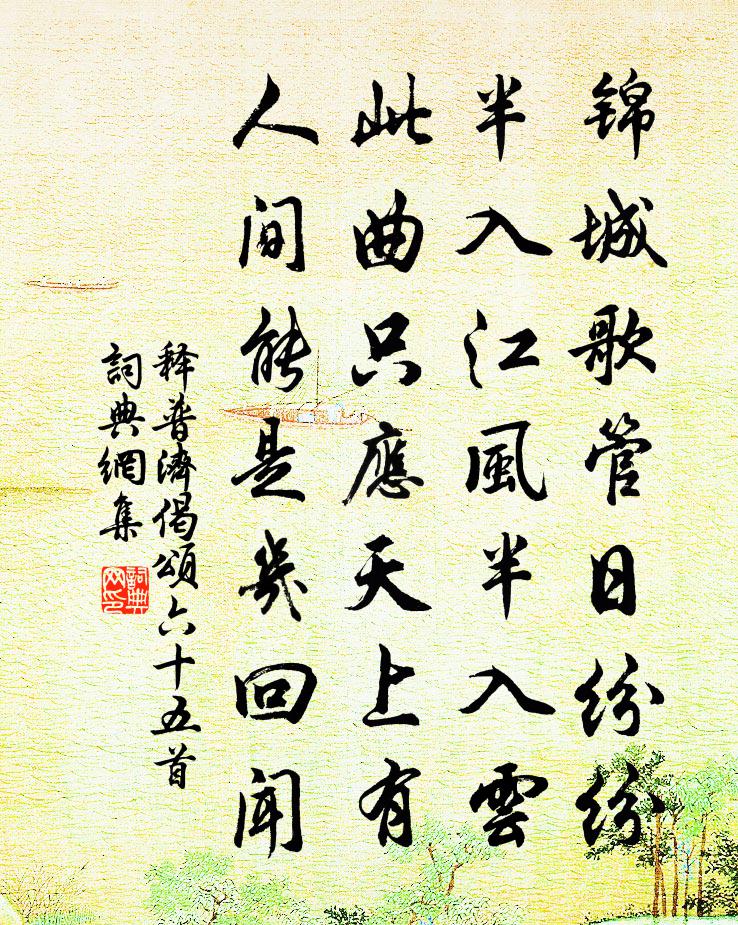 锦城歌管日纷纷
半入江風半入雲
此曲只應天上有
人间能是幾回闻
释普濟偈頌六十五首
詞典網集
詞典
网印